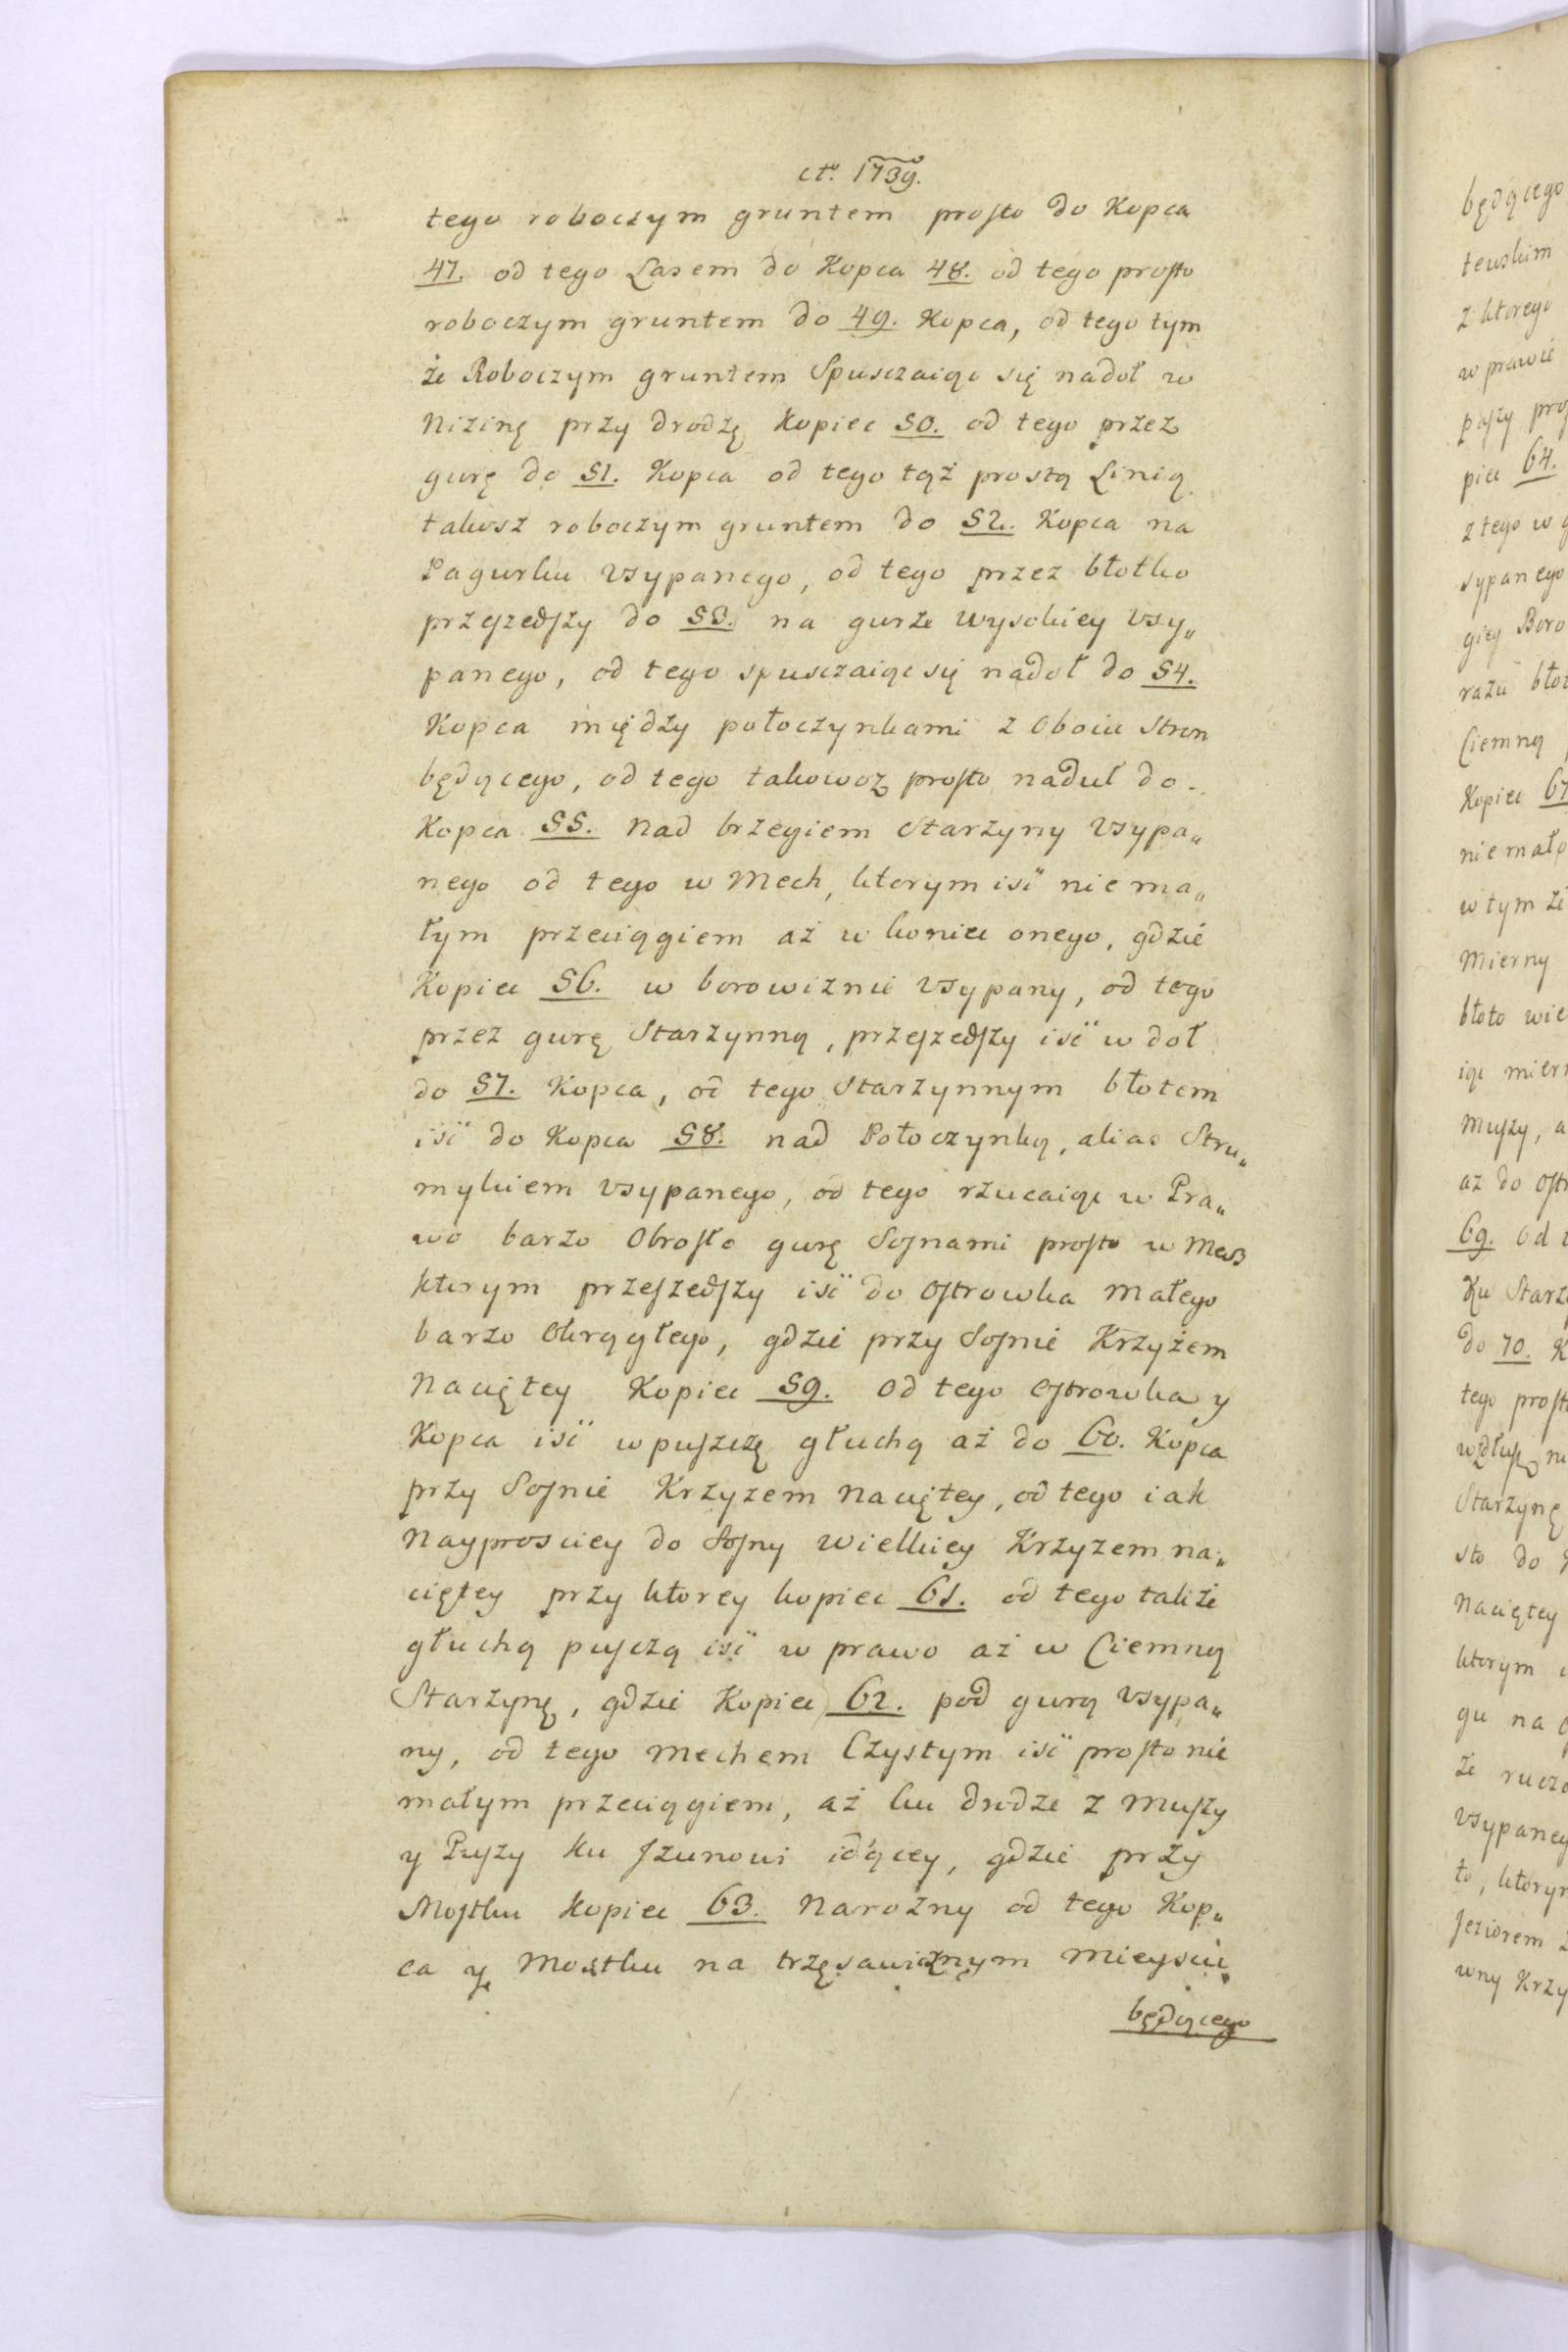 ct.o 1739.
tego roboczym gruntem prosto do Kopca
47. od tego Lasem do Kopca 48. od tego prosto
roboczym gruntem do 49. Kopca, od tego tym
że Roboczym gruntem Spusczaiąc się nadoł w
Nizinę przy drodzę Kopiec 50. od tego przez
gurę do 51. Kopca od tego tąż prostą Linią
takosz roboczym gruntem do 52. Kopca na
Pagurku vsypanego, od tego przez błotko
przeszedszy do 53. na gurze wysokiey vsy„
panego, od tego spusczaiąc się nadoł do 54.
Kopca między połoczynkami z oboiu stron
będącego, od tego takowoz prosto naduł do
Kopca 55. Nad brzegiem Starzyny vsypa„
nego od tego w Mech, ktorym isć niema„
łym przeciągiem aż w koniec onego, gdzie
Kopiec 56. w borowiznie vsypany, od tego
przez gurę Starzynną, przeszedszy isć w doł
do 57. Kopca, od tego Starzynnym błotem
isć do Kopca 58. nad Połoczynką, alias Stru„
mykiem vsypanego, od tego rzucaiąc w Pra„
wo barzo Obrosło gurę Sosnami prosto w Mech
ktorym przeszedszy isć do Ostrowka małego
barzo Okrągłego, gdzie przy Sosnie Krzyżem
Naciętey Kopiec 59. od tego Ostrowka y
Kopca isć wpuszczę głuchą aż do 60. Kopca
przy Sosnie Krzyzem Naciętey, od tego iak
Nayprosciey do Sosny wielkiey Krzyzem na„
ciętey przy ktorey kopiec 61. od tego także
głuchą pusczą isć w prawo aż w Ciemną
Starzynę, gdzie Kopiec 62. pod gurą vsypa„
ny, od tego Mechem Czystym isć prosto nie
małym przeciągiem, aż ku drodze z Muszy
y Puszy ku Jzunowi idącey, gdzie przy
Mostku Kopiec 63. Narozny od tego Kop„
ca y Mostku na trzęsawicznym Mieyscu
będącego

będącego
tewskim
z ktorego
w prawie
piec 64.
z tego w
sypanego
giey Boro
Ciemną
Kopiec 67
nie mało
w tym że
Mierny
błoto wie
Muszy, a
aż do Ostr
69. od t
Ku Starz
do 70. K
tego prost
Starzynę
sto do
Naciętey
ktorym
gu na
że rucz
vsypaneg
to, ktorym
Jeziorem
wny Krzy